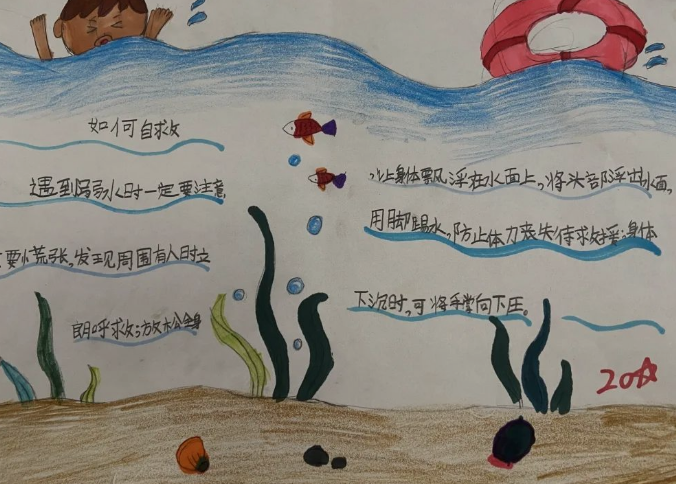 如何自救
遇到溺水时一定要注意
要慌张,发现周围有人时立
呼救;放松全身
让身体飘浮在水面上,将头部浮出水面,
用脚踢水,防止体力丧失待救援,身体
下沉时,可将手掌向下压。
20